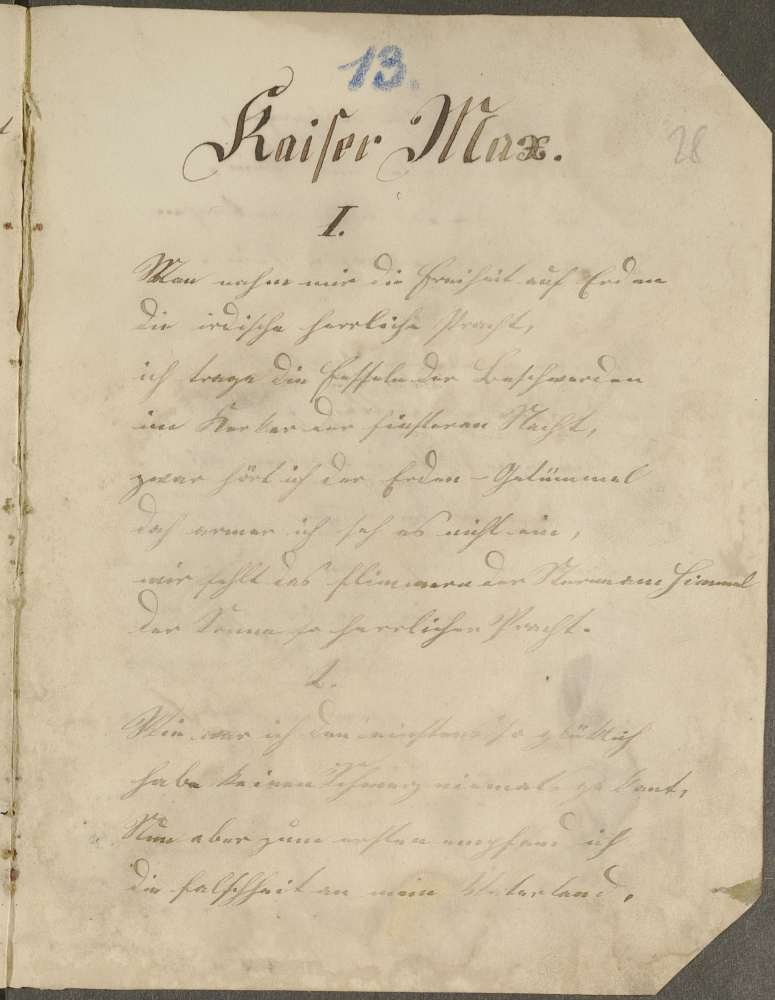 13.
Kaiser Max.
28
I.
Man nahm mir die Freiheit auf Erden
die irdische herrliche Pracht,
ich trage die Fesseln der Beschwerden
im Kerker der finsteren Nacht,
zwar hört ich der Erden-Getümmel
doch armer ich seh es nicht ein,
mir fehlt das flimmern der Sterne am Himmel
der Sonne so herrlicher Pracht.
2.
Wie war ich den einstens so glüklich
habe keinen Schmerz niemals gekant,
Nun aber zum ersten empfand ich
die falschheit an mein Vaterland,